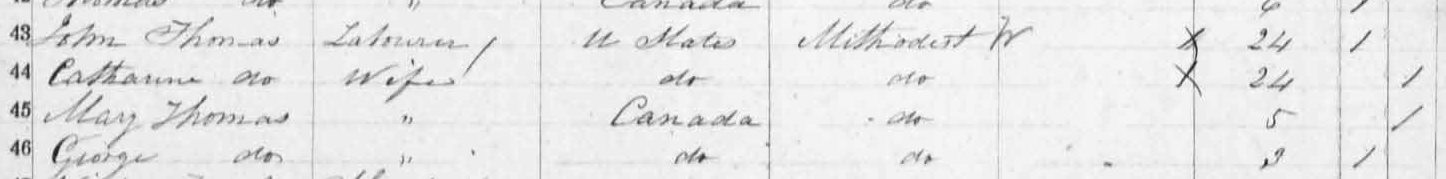 Thomas do " Canada do 6 1
43 John Thomas Labourer / U States Methodist W X 24 1
44 Catharine do Wife do do X 24 1
45 Mary Thomas " Canada do 5 1
46 George do " do do 3 1